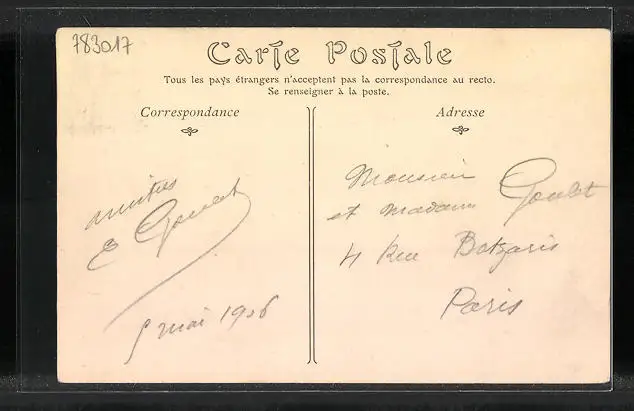 783017
Carte Postale
Tous les pays étrangers n'acceptent pas la correspondance au recto.
Se renseigner à la poste.
Correspondance
amitiés
E Goulet
5 mai 1906
Adresse
Monsieur
et Madame Goulet
4 Rue Botzaris
Paris